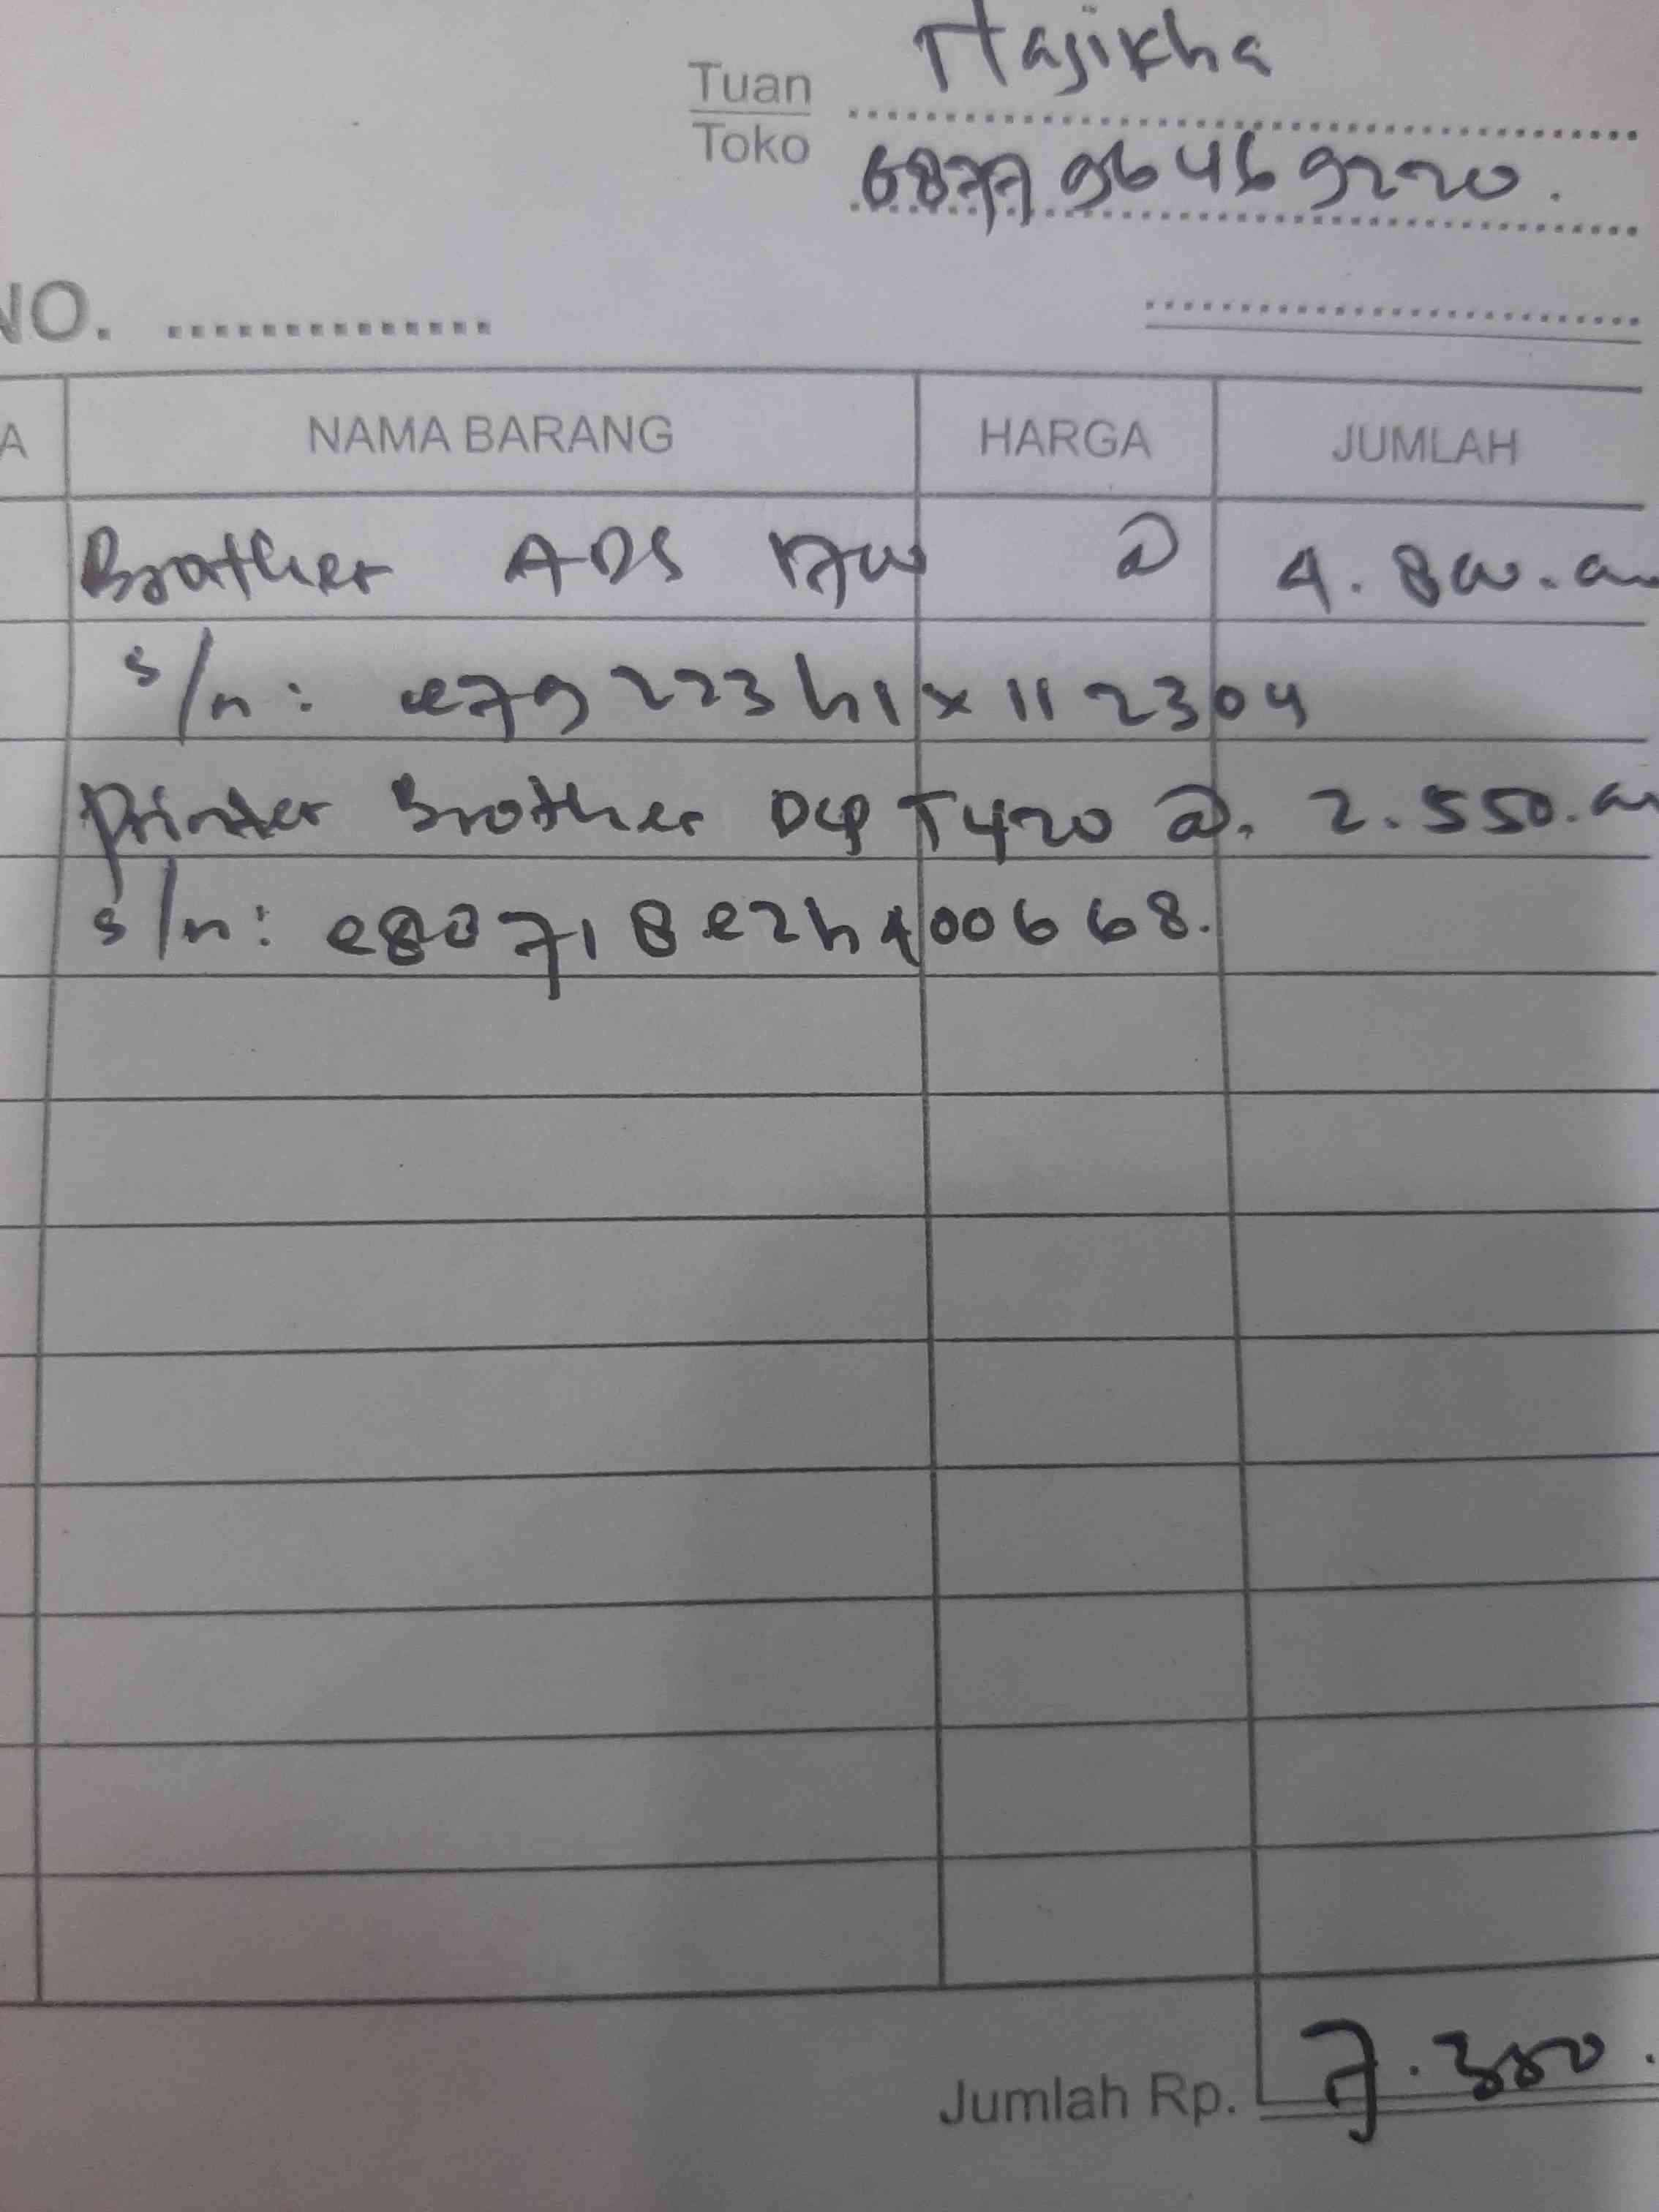 Hajikha
Tuan
Toko
087796469220.
NO. ..............
A NAMA BARANG HARGA JUMLAH
Brother ADS @ 4.800.
s/n: e79223h1x112304
Printer Brother DCP T420 @. 2.550.
s/n: e80718e2h400668.
Jumlah Rp. 7.350.